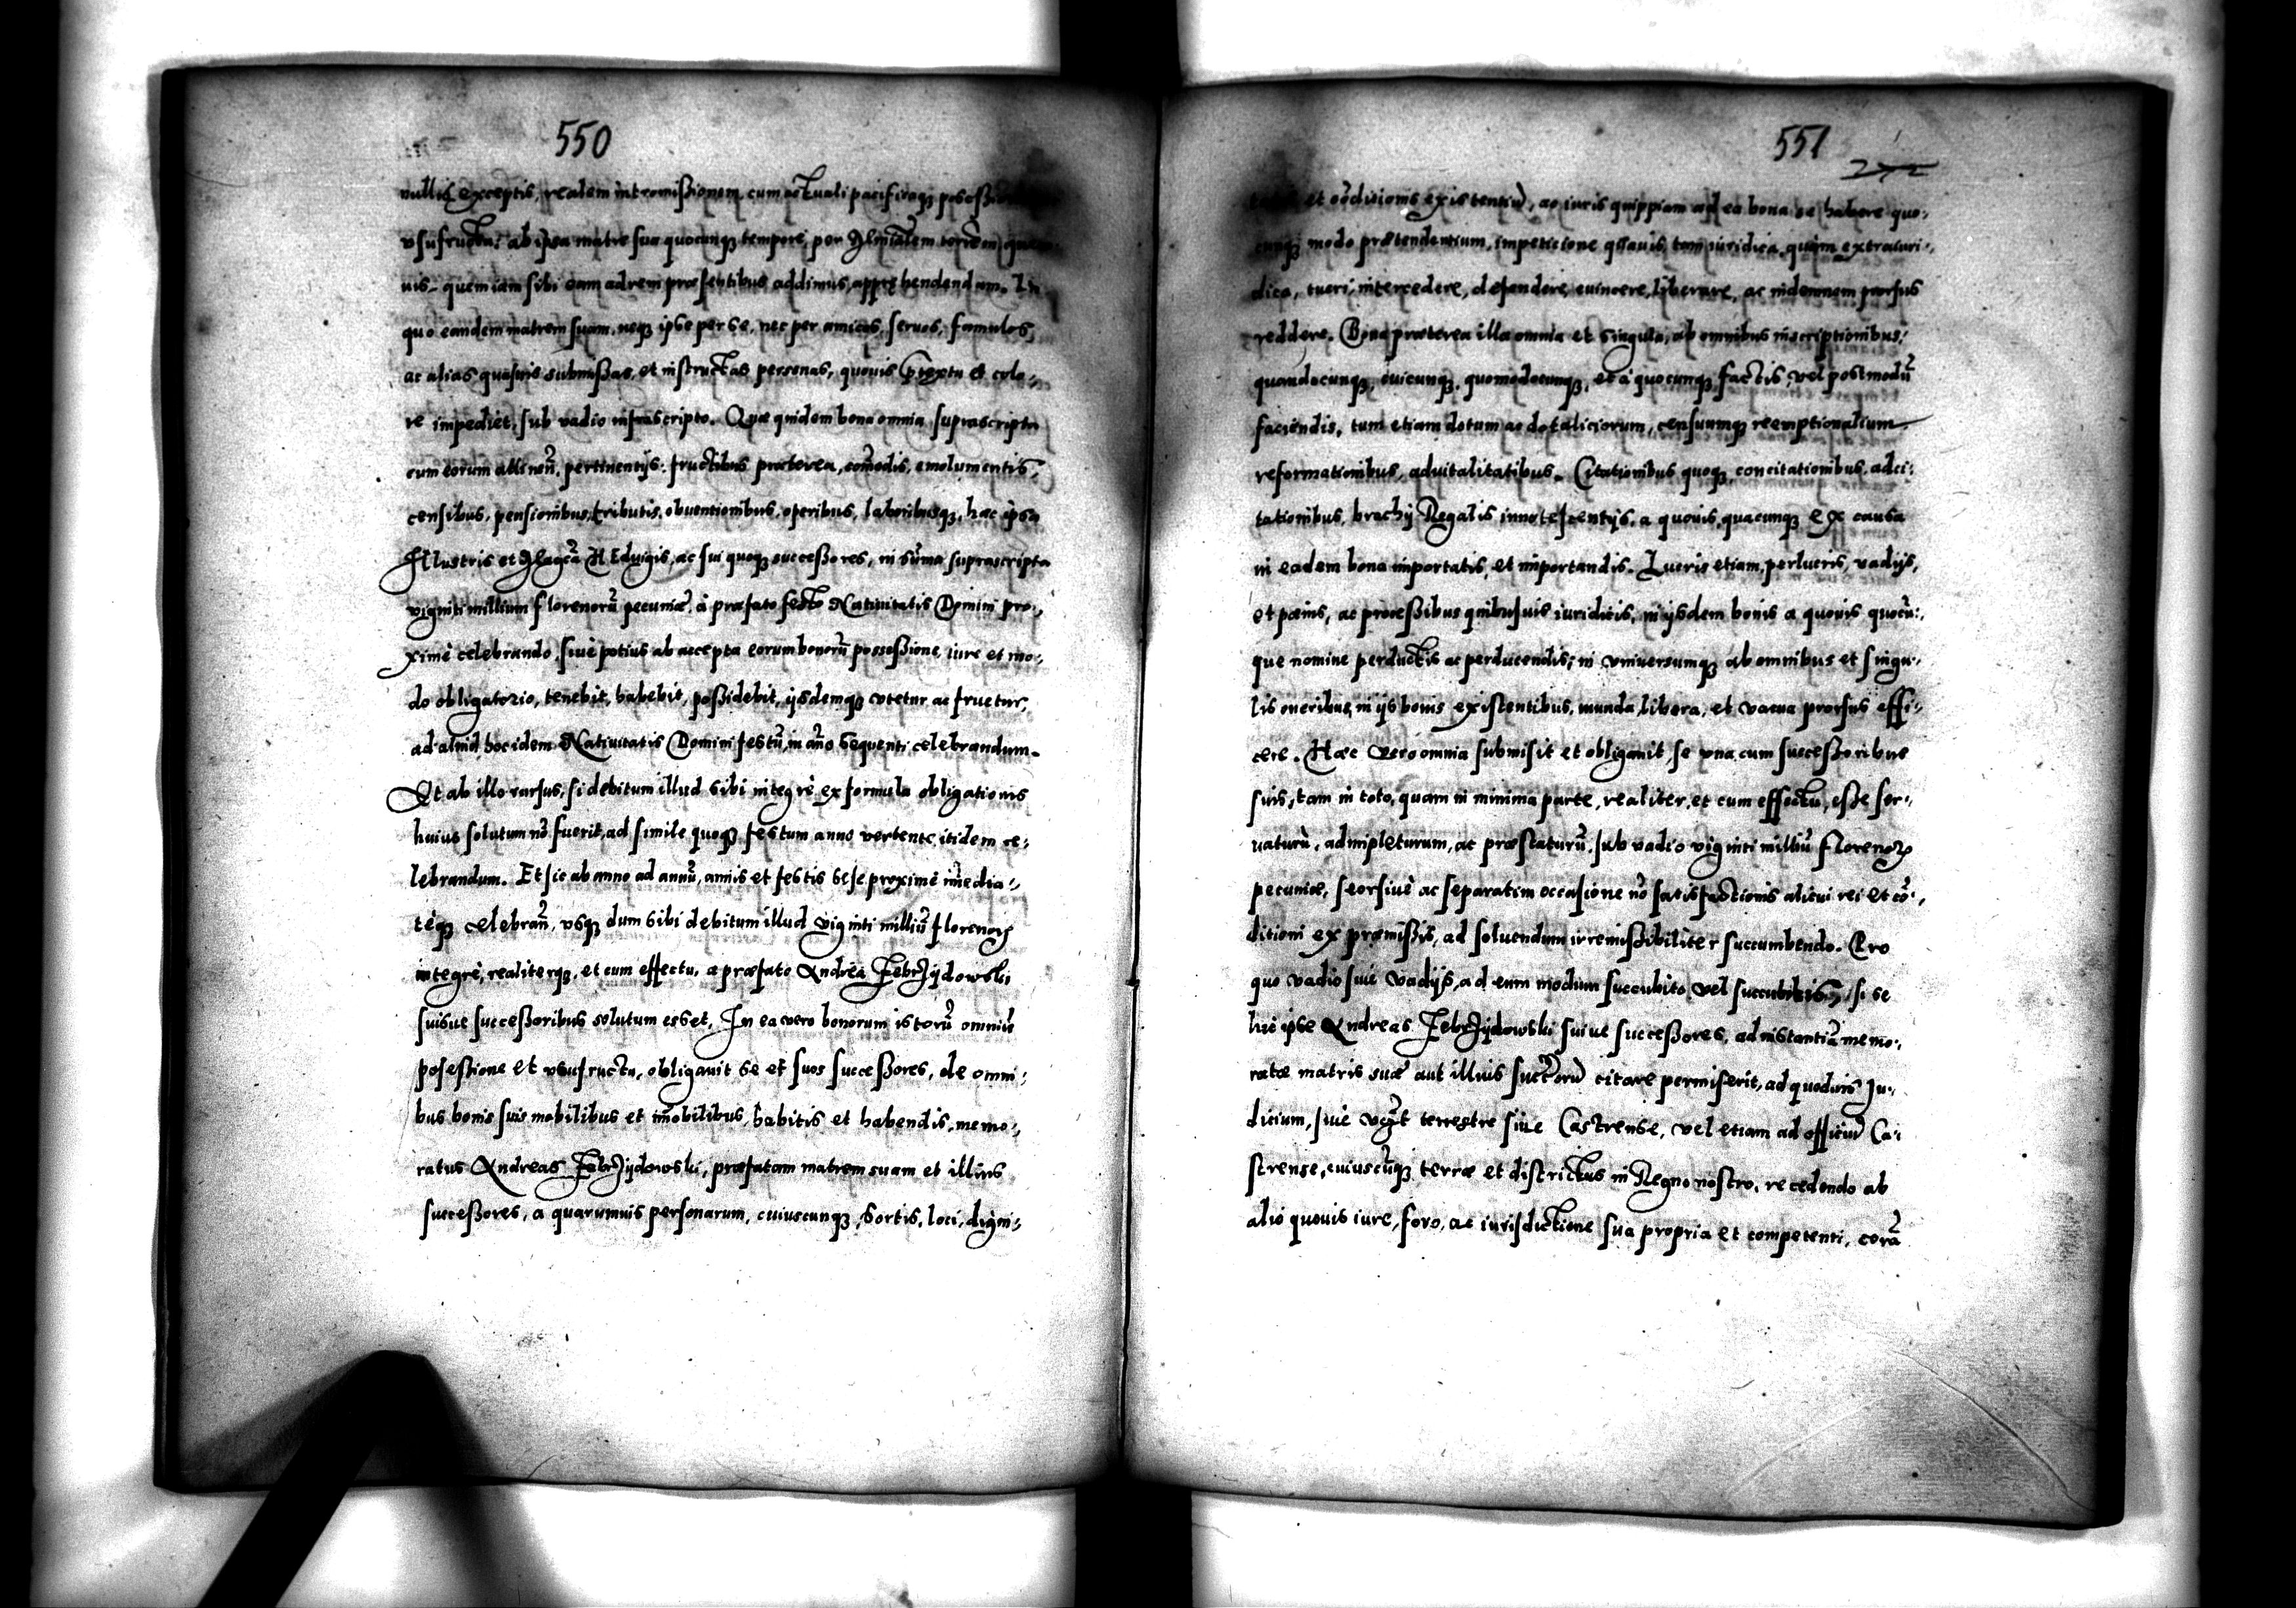 550
nullis exceptis, realem intromißionem, cum actuali pacificaq3
vsufructu: ab ipsa matre sua quocunq3 tempore, per
uis, quem iam sibi eam ad rem præsentibus addimus, apprehendendam. In
quo eandem matrem suam, neq3 ipse per se, nec per amicos, seruos, famulos,
ac alias quasuis submißas, et instructas personas, quouis prætextu et colo:
re impediet, sub vadio infrascripto. Quæ quidem bona omnia suprascripta
cum eorum attineñ, pertinentijs: fructibus præterea, com̃odis, emolumentis,
censibus, pensionibus, tributis, obuentionibus, operibus, laboribusq3, hæc ipsa
Illustris et Magc̃a HEduigis, ac sui quoq3 succeßores, in sum̃a suprascripta
viginti millium florenorũ pecuniæ, à præfato festo Natiuitatis Domini pro:
ximè celebrando, siuè potius ab accepta eorum bonorũ posseßione, iure et mo:
do obligatorio, tenebit, habebit, poßidebit, ijsdemq3 vtetur ac fruetur,
ad aliud hoc idem Natiuitatis Domini festũ, in año sequenti celebrandum.
Et ab illo rursus, si debitum illud sibi integrè ex formula obligationis
huius solutum nõ fuerit, ad simile quoq3 festum anno vertente itidem ce:
lebrandum. Et sic ab anno ad annũ, annis et festis sese proximè im̃edia:
teq3 celebrañ, vsq3 dum sibi debitum illud viginti milliũ florenorꝝ
integrè, realiterq3, et cum effectu, a præfato Andrea Zebrzijdowski
suisue succeßoribus solutum esset. In ea vero bonorum istorũ omniũ
poseßione et vsufructu, obligauit se et suos succeßores, de omni:
bus bonis suis mobilibus et im̃obilibus, habitis et habendis, memo:
ratus Andreas Zebrzijdowski, præfatam matrem suam et illius
succeßores, a quarumuis personarum, cuiuscunq3, sortis, loci, digni:
551
et coñditionis existentiũ, ac iuris quippiam ad ea bona se habere quo:
cunq3 modo prætendentium, impeticione quauis, tam iuridica quàm extraiuri:
dica, tueri, intercedere, defendere, euincere, liberare, ac indemnem prorsus
reddere. Bona præterea illa omnia et singula, ab omnibus inscriptionibus,
quandocunq3, cuicunq3, quomodocunq3, et à quocunq3 factis, vel postmodũ
faciendis, tum etiam dotum ac dotaliciorum, censuumq3 reemptionalium
reformationibus, aduitalitatibus. Citationibus quoq3, concitationibus, adci:
tationibus, brachij Regalis innotescentijs, a quouis, quacunq3 ex causa
in eadem bona importatis, et importandis. Lucris etiam, perlucris, vadijs,
et pœnis, ac proceßibus quibusuis iuridicis, in ijsdem bonis a quouis quocũ:
que nomine perductis ac perducendis; in vniuersumq3 ab omnibus et singu:
lis oneribus, in ijs bonis existentibus, munda, libera, et vacua prorsus effi:
cere. Hæc vero omnia submisit et obligauit, se vna cum succeßoribus
suis, tam in toto, quam in minima parte, realiter, et cum effectu, eße ser:
uaturũ, adimpleturum, ac præstaturũ, sub vadio viginti milliũ florenorꝝ
pecuniæ, seorsiuè ac separatim occasione nõ satisfactionis alicui rei et cõ:
ditioni ex præmißis, ad soluendum irremißibiliter succumbendo. Pro
quo vadio siue vadijs, ad eum modum succubito, vel succubitis, si se
hic ipse Andreas Zebrzijdowski suiue succeßores, ad instantiã memo:
ratæ matris suæ aut illius succr̃orũ citare permiserit, ad quoduis Ju:
dicium, siuè terrestre siue Castrense, vel etiam ad officiũ Ca:
strense, cuiuscũq3 terræ et districtus in Regno nostro, recedendo ab
alio quouis iure, foro, ac iurisdictione sua propria et competenti, corã